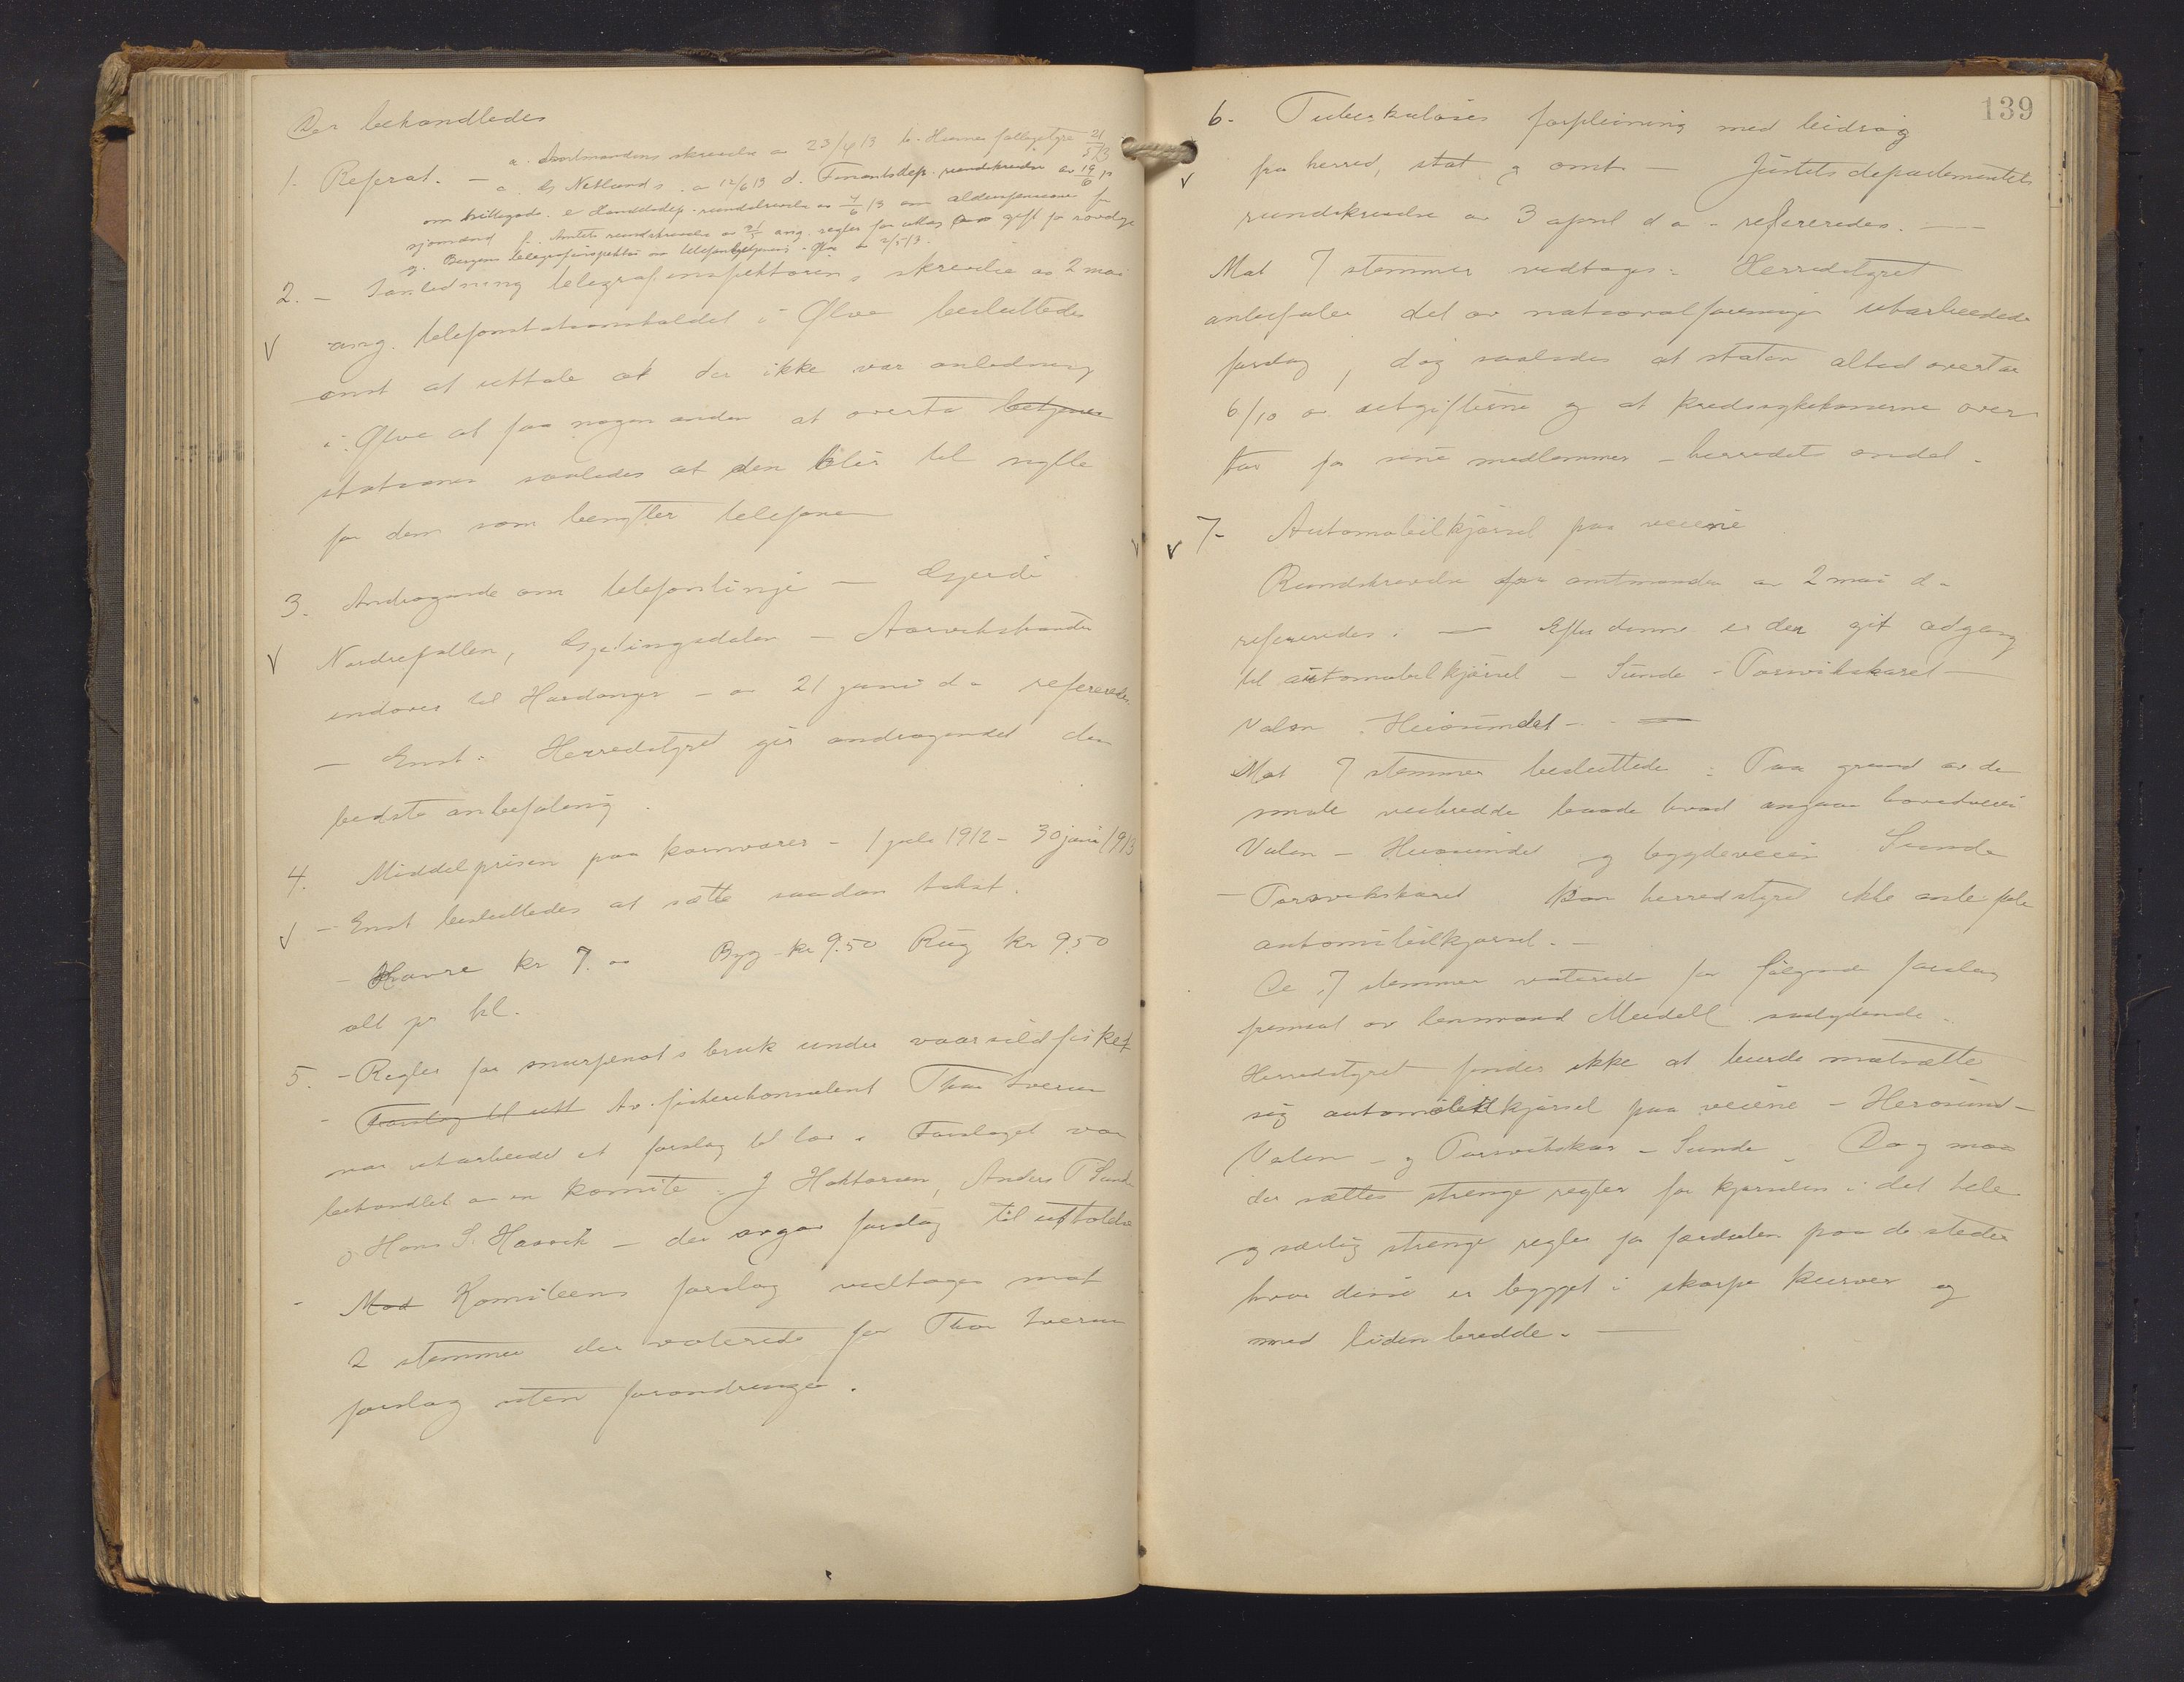 Der behandledes
1. Referat. - a. Amtmandens skrivelse av 23/4 13 b. Hervens fællesstyre 21/5 13
c. G Netlands av 12/6 13 d. Finantsdep. rundskrivelse av 19/6 13
om e Handelsdep. rundskrivelse av 7/6 13 om alderspension for
sjømænd f. Amtets rundskrivelse av 21/5 ang. regler for utlæg av gift for rovdyr
g. Bergens telegrafinspektør om telefonbetjening i Ølve av 2/5 13.
2. - I anledning telegrafinspektørens skrivelse av 2 mai
ang. telefonstationsholdet i Ølve besluttedes
enst at uttale at der ikke var anledning
i Ølve at faa nogen anden at overta betjenes
stationen saaledes at den blir til nytte
for dem som benytter telefonen
3. Andragende om telefonlinje - Gjerde
Nordrepollen, Gjetingsdalen - Aarvikstranden
indover til Hardanger - av 21 juni d.a. refereredes
- Enst: Herredstyret gir andragendet den
bedste anbefaling.
4. Middelprisen paa kornvarer - 1 juli 1912 - 30 juni 1913
- Enst besluttedes at sætte saadan takst.
- Havre kr 7.00 Byg - kr 9.50 Rug kr 9.50
alt pr hl.
5. - Regler for snurpenots bruk under vaarsildfisket
- Forslag til utt Av fiskerikonsulent Thor Iversen
var utarbeidet et forslag til lov. Forslaget var
behandlet av en komite - J Haktorsen, Anders T Sunde
og Hans S. Haavik - der avgav forslag til uttalelse
- Mod Komiteens forslag vedtages mot
2 stemmer der voterede for Thor Iversens
forslag uten forandringer.
139
6. Tuberkuløses forpleining med bidrag
fra herred, stat og amt - Justitsdepartementets
rundskrivelse av 3 april d.a. - refereredes. -
Mot 7 stemmer vedtages: Herredstyret
anbefaler det av nationalforeningen utarbeidede
forslag, dog saaledes at staten altid overtar
6/10 av utgifterne og at kredssykekasserne over
tar for sine medlemmer - herredets andel -
7- Automobilkjørsel paa veiene
Rundskrivelse fra amtmanden av 2 mai d.a.
refereredes. - Efter denne er der git adgang
til automobilkjørsel - Sunde - Torsvikskaret -
Valen - Herøsundet - -
Mot 7 stemmer besluttede: Paa grund av de
smale veibredde baade hvad angaar hovedveien
Valen - Herøsundet og bygdeveien Sunde
- Torsvikskaret kan herredstyret ikke anbefale
automobilkjørsel. -
De 7 stemmer voterede for følgende forslag
fremsat av lensmand Meidell saalydende -
Herredstyret finder ikke at burde motsætte
sig automobilkjørsel paa veiene - Herøsund -
Valen - og Torsvikskar - Sunde. Dog maa
der sættes strenge regler for kjørselen i det hele
og særlig strenge regler for færdselen paa de steder
hvor disse er bygget i skarpe kurver og
med liden bredde. -